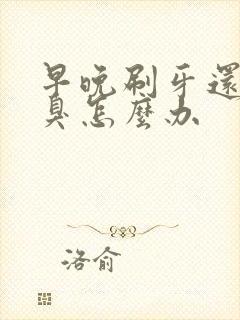 早晚刷牙還
臭怎麼办
洛俞